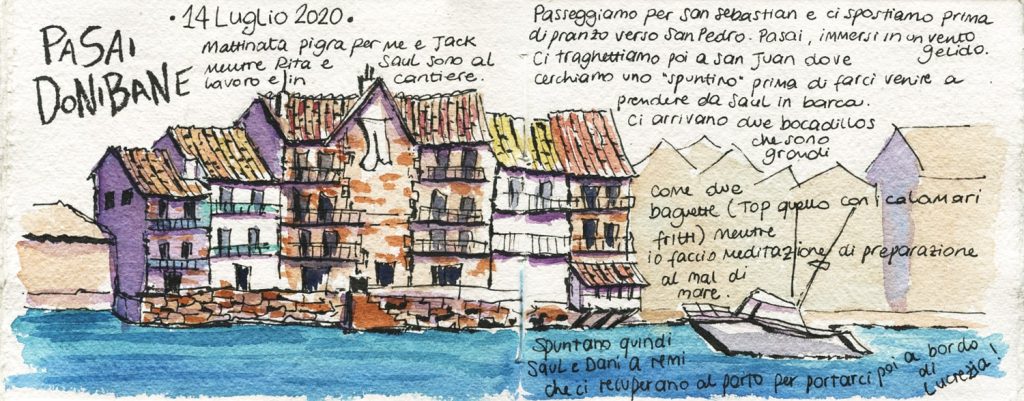 PASAI
DONIBANE
• 14 LUGLIO 2020 •
Mattinata pigra per me e Jack
mentre Rita e Saul sono al
lavoro e in cantiere.
Passeggiamo per San Sebastian e ci spostiamo prima
di pranzo verso San Pedro. Pasai, immersi in un vento
gelido.
Ci traghettiamo poi a San Juan dove
cerchiamo uno "spuntino" prima di farci venire a
prendere da Saul in barca.
Ci arrivano due bocadillos
che sono
grandi
come due
baguette (Top quello con i calamari
fritti) mentre
io faccio meditazione di preparazione
al mal di
mare.
Spuntano quindi
Saul e Dani a remi
che ci recuperano al porto per portarci poi a bordo
di
Lucrezia!